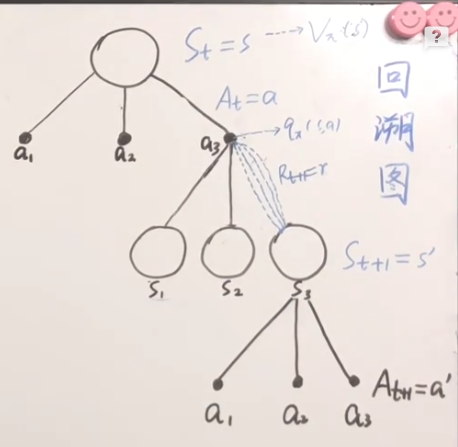 S_t = s ----> V_π(s)
A_t = a
a₁ a₂ a₃ → q_π(s,a)
R_{t+1} = r
回
溯
图
S_{t+1} = s'
s₁ s₂ s₃
A_{t+1} = a'
a₁ a₂ a₃
?